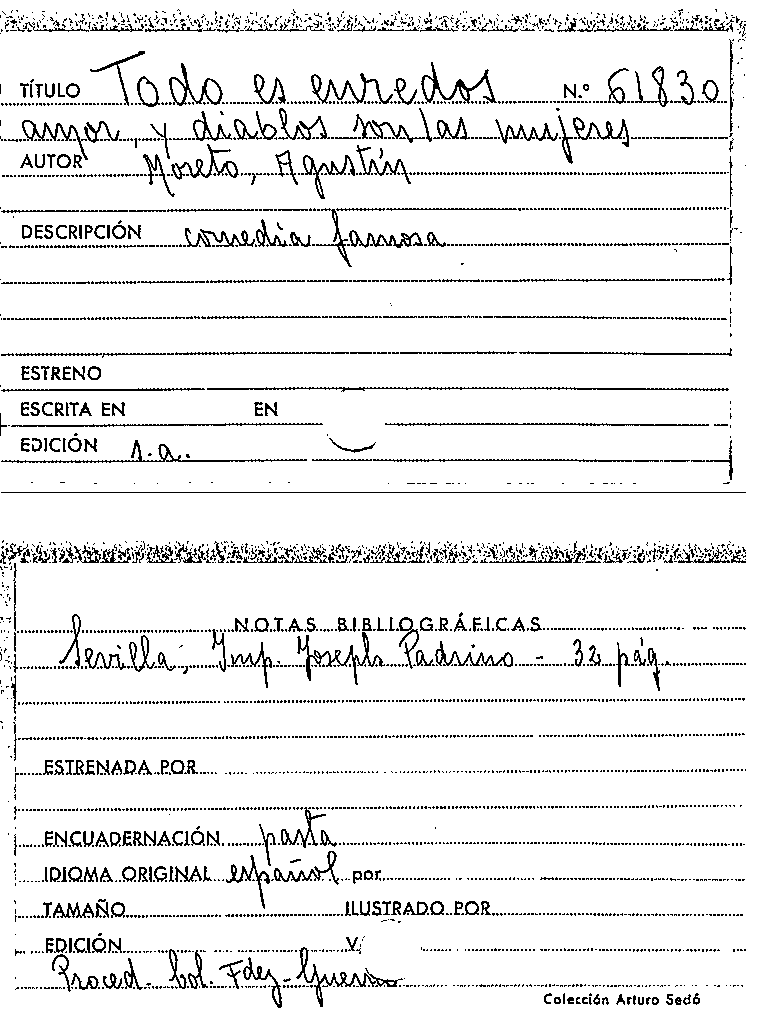 TÍTULO Todo es enredos N.º 61830
amor, y diablos son las mujeres
AUTOR Moreto, Agustín
DESCRIPCIÓN comedia famosa
ESTRENO
ESCRITA EN EN
EDICIÓN s.a.
NOTAS BIBLIOGRÁFICAS
Sevilla; Imp. Joseph Padrino - 32 pág.
ESTRENADA POR
ENCUADERNACIÓN pasta
IDIOMA ORIGINAL español por
TAMAÑO ILUSTRADO POR
EDICIÓN V/
Proced. Col. Fdez-Guerra
Colección Arturo Sedó